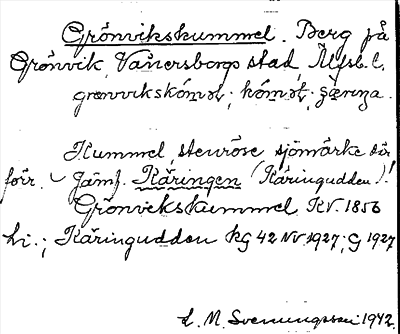 Grönvikskummel. Berg på
Grönvik, Vänersborgs stad, Älfsb. l.
Kummel, stenröse sjömärke där
förr. Jämf. Käringen (Käringudden)!
Grönvekskummel KV. 1856
hi.; Käringudden kG 42 NV 1927; G 1927
L. M. Svenungsson 1942.